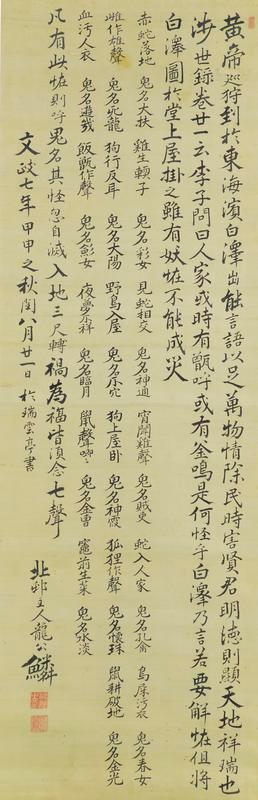 黄帝巡狩到於東海濱白澤出能言語以足萬物情除民時害賢君明徳則顯天地祥瑞也
渉世録巻廿一云李子問曰人家或時有甑呼或有釜鳴是何怪乎白澤乃言若要解怪但将
白澤圖於堂上屋掛之雖有妖怪不能成災
赤蛇落地 鬼名大扶 雞生軟子 鬼名彩女 見蛇相交 鬼名神通 宵聞雉聲 鬼名賊吏 蛇入人家 鬼名孔禽 鳥屎汚衣 鬼名春女
雌作雄聲 鬼名死龍 狗行反耳 鬼名大陽 野鳥入屋 鬼名不宂 狗上屋卧 鬼名神霞 狐狸作聲 鬼名懷珠 鼠耕破地 鬼名金光
血汚人衣 鬼名遊 飯甑作聲 鬼名彭女 夜夢不祥 鬼名臨月 鼠聲唧〻 鬼名金曹 竈前生菜 鬼名水淡
凡有此怪則呼鬼名其怪忽自滅入地三尺轉禍為福皆須念七聲
文政七年甲申之秋閏八月廿一日於瑞雲亭書
北邨主人龍公鱗